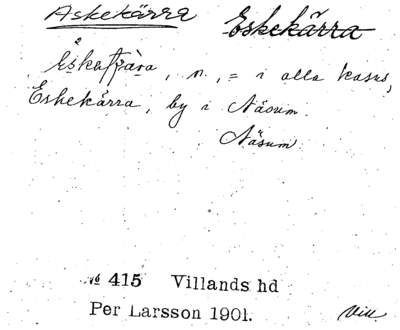 Askekärra Eskekärra
n., = i alla kasus,
Eskekärra, by i Näsum.
Näsum.
№ 415 Villands hd
Per Larsson 1901. Vill